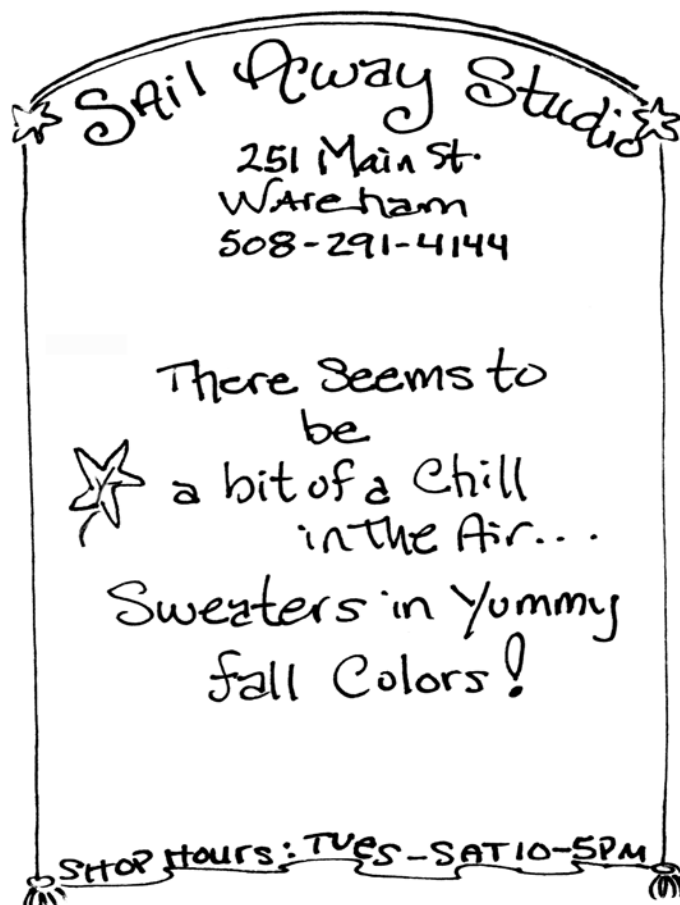 Sail Away Studio
251 Main St.
Wareham
508-291-4144
There Seems to
be
a bit of a Chill
in the Air...
Sweaters in Yummy
fall Colors!
SHOP HOURS: TUES-SAT 10-5PM